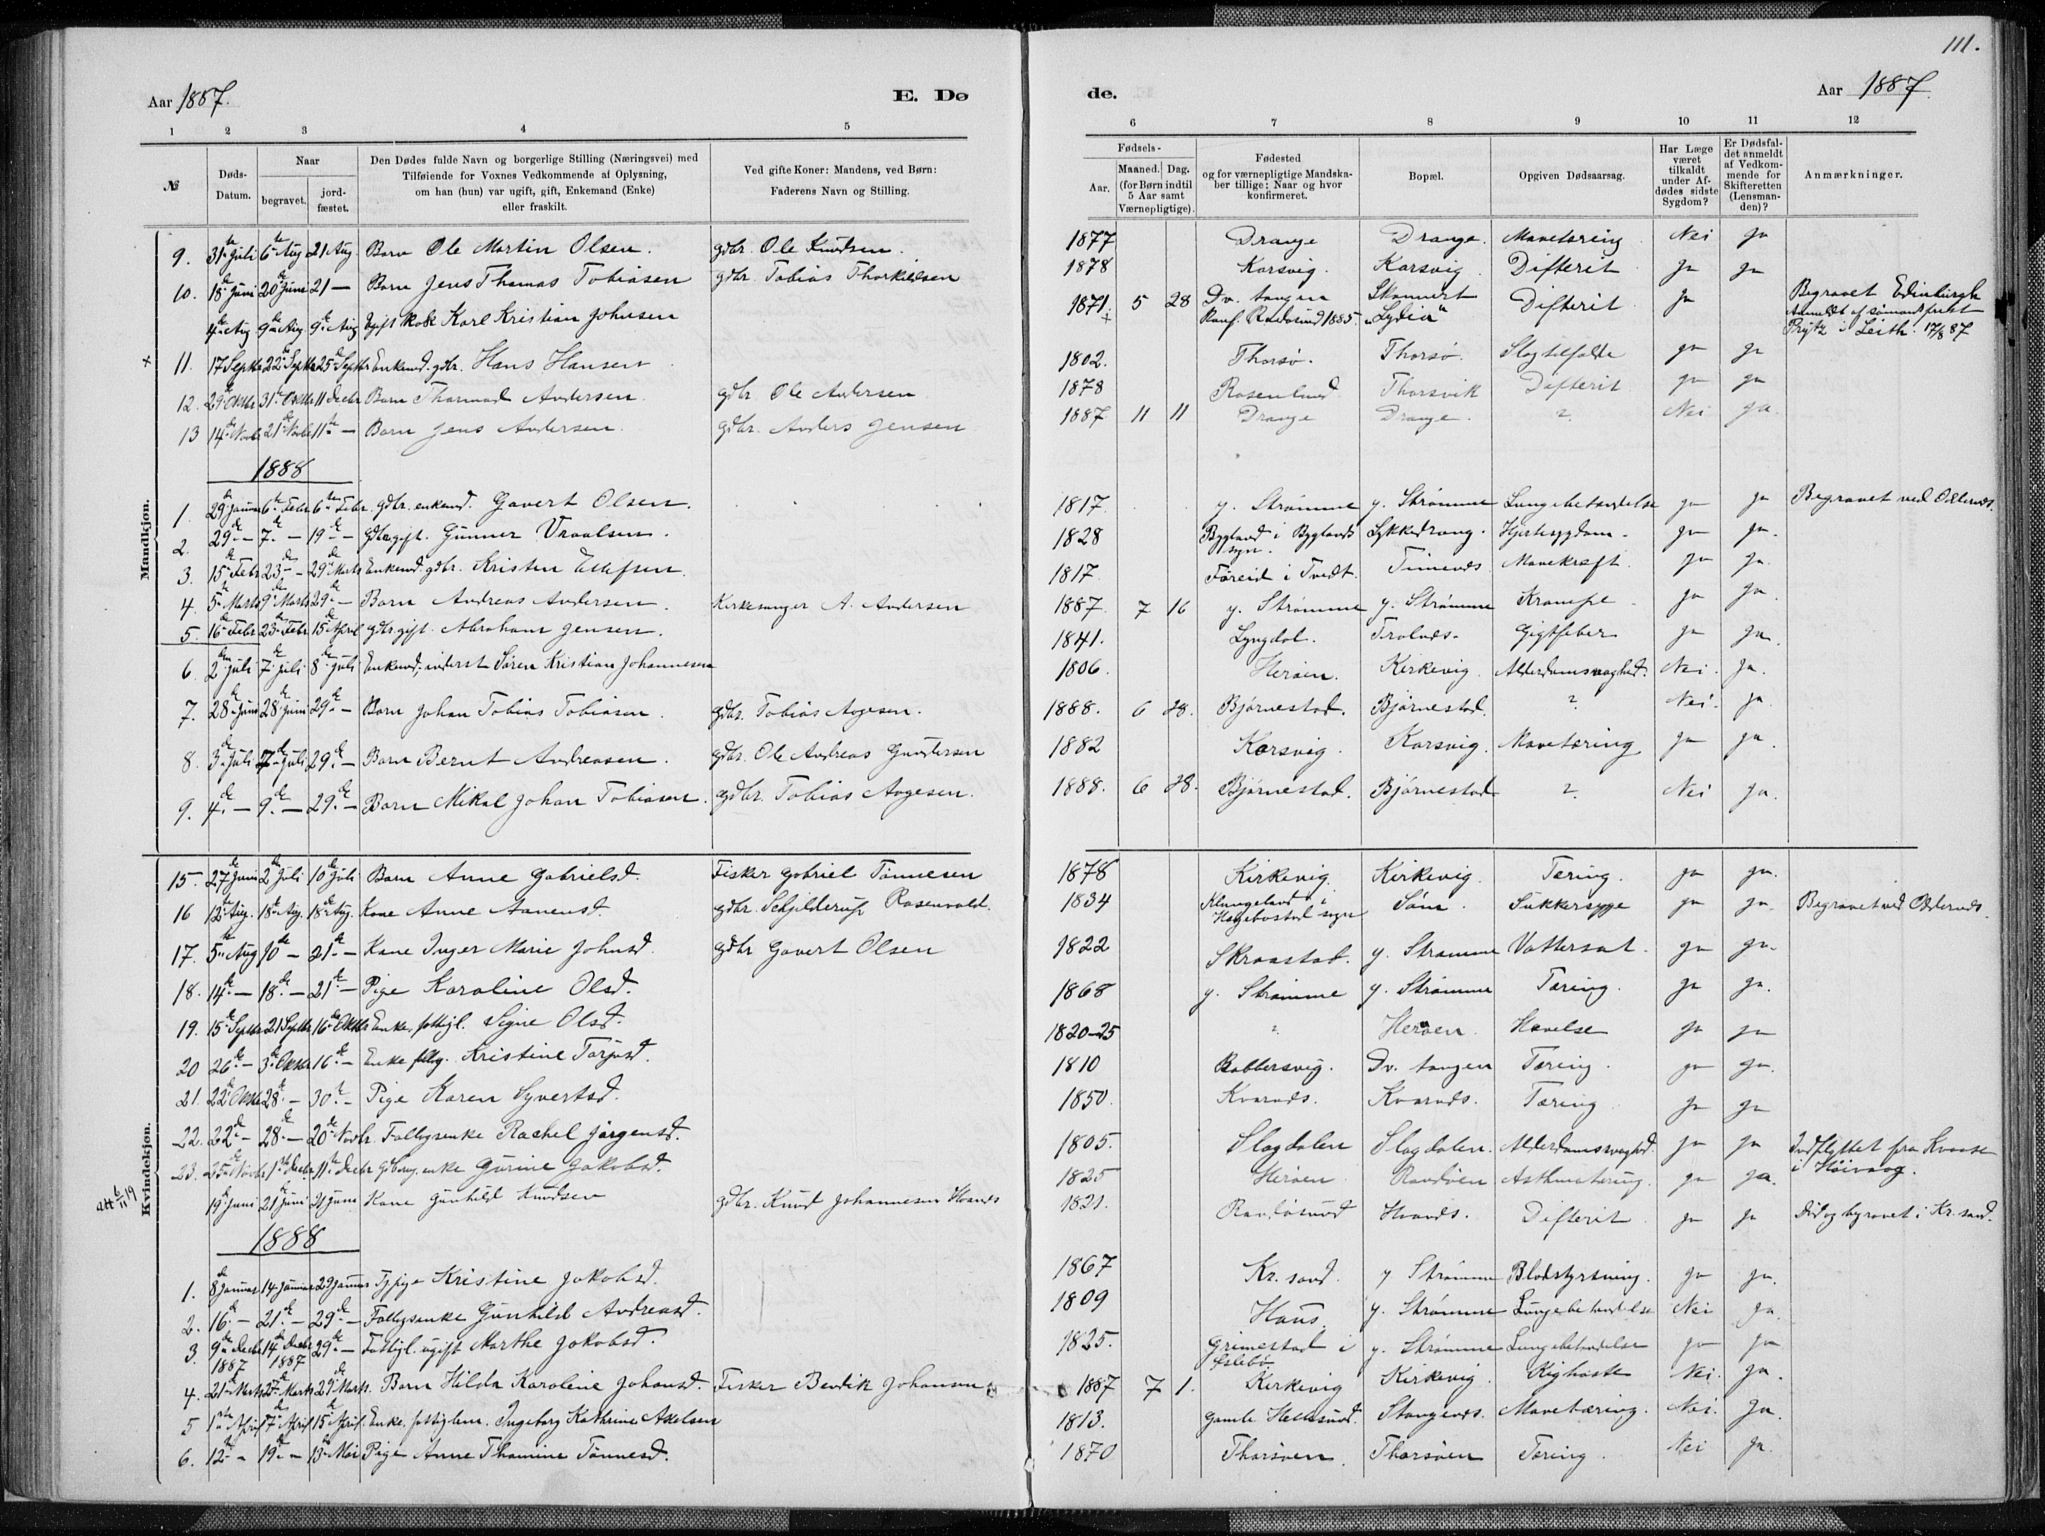 111.
Aar 1887.
E. Dø
de.
Aar 1887.
1 2 3 4 5 6 7 8 9 10 11 12
№
Døds-Datum.
Naar
begravet.
jord-fæstet.
Den Dødes fulde Navn og borgerlige Stilling (Næringsvei) med
Tilføiende for Voxnes Vedkommende af Oplysning,
om han (hun) var ugift, gift, Enkemand (Enke)
eller fraskilt.
Ved gifte Koner: Mandens, ved Børn:
Faderens Navn og Stilling.
Fødsels-
Aar. Maaned. Dag.
(for Børn indtil
5 Aar samt
Værnepligtige).
Fødested
og for værnepligtige Mandska-
ber tillige: Naar og hvor
konfirmeret.
Bopæl.
Opgiven Dødsaarsag.
Har Læge
været
tilkaldt
under Af-
dødes sidste
Sygdom?
Er Dødsfal-
det anmeldt
af Vedkom-
mende for
Skifteretten
(Lensman-
den)?
Anmærkninger.
Mandkjøn.
9. 31te Juli 6te Aug 21 Aug. Barn Ole Martin Olsen. gdbr. Ole Knudsen. 1877 Drange Drange. Mavetæring Nei ja
10. 18de Juni 20de Juni 21 — Barn Jens Thomas Tobiasen gdbr Tobias Thorkildsen 1878 Korsvig. Korsvig. Difterit ja ja
4de Aug 9de Aug 9de Aug Ugift Kok Karl Kristian Johnsen 1871 5 28 Dv. tangen Konf. Randøsund 1885. Skonnert "Lydia" Difterit ja Begravet Edinburgh Anmeldt af sømandsprest Brytz i Leith. 17/8 87
+ 11. 17 Septbr 22de Septbr 25de Septbr Enkemd. gdbr. Hans Hansen 1802. Thorsø. Thorsø. Slagtilfælde ja ja
12. 29de Oktbr 31te Oktbr 11 Decbr Barn Thormod Andersen. gdbr. Ole Andersen 1878 Rosenlund Thorsvik Difterit ja ja
13 14de Novbr 21de Novbr 11te — Barn Jens Andersen. gdbr. Anders Jensen 1887 11 11 Drange Drange. ? Nei ja.
1888
1. 29de Januar 6te Febr 6te Febr. gdbr. enkemd. Govert Olsen. 1817. y. Strømme y. Strømme Lungebetændelse ja ja Begravet ved Oddernes.
2. 29de — 7de — 19de — Gdbr gift. Gunner Vraalsen. 1828 Bygland i Byglands sogn. Lykkedrang. Hjertesygdom. ja ja.
3. 15de Febr 23de — 29de Marts Enkemd. gdbr. Kristen Ellefsen. 1817. Føreid i Tvedt. Timenes Mavekræft. ja ja.
4. 5te Marts 9de Marts 29de — Barn Andreas Andersen. Kirkesanger A. Andersen 1887. 7 16 y. Strømme y. Strømme Krampe. ja ja.
5. 16de Febr 23de Febr 15de April gdbr gift. Abraham Jensen. 1841. Lyngdal. Frolnes. Gigtfeber ja ja
6. 2den Juli 7de Juli 8de Juli Enkemd, inderst Søren Kristian Johannesen 1806. Herøen. Kirkevig. Alderdomssvaghed. Nei. ja.
7. 28de Juni 28de Juni 29de — Barn Johan Tobias Tobiasen. gdbr. Tobias Aagesen. 1888. 6 28. Bjørnestad. Bjørnestad. ? Nei. ja.
8. 3de Juli 7de Juli 29de — Barn Bernt Andreasen. gdbr. Ole Andreas Gundersen 1882 Korsvig. Korsvig. Mavetæring ja ja.
9. 4de — 9de — 29de — Barn Mikal Johan Tobiasen. gdbr. Tobias Aagesen. 1888. 6 28. Bjørnestad. Bjørnestad. ? Nei ja.
Kvindekjøn.
15. 27de Juni 2den Juli 10de Juli Barn Anne Gabrielsd. Fisker Gabriel Tønnesen 1878 Kirkevig. Kirkevig. Tæring. ja ja.
16 12te Aug. 18de Aug. 18de Aug. Kone Anne Aanensd. gdbr. Schjelderup Rosenvold. 1834 Klungeland i Hægebostad sogn Søm. Sukkersyge ja ja. Begravet ved Oddernes.
17. 5te Aug 10de — 21de — Kone Inger Marie Johnsd. gdbr Govert Olsen 1822 Skraastad. y. Strømme Vattersot. ja ja.
18. 14de — 18de — 21de — Pige Karoline Olsd. 1868 y. Strømme y. Strømme Tæring. ja ja.
19. 15de Septbr 21 Septbr 16de Oktbr Enke, fattigl. Signe Olsd. 1820-25 " Herøen. Hævelse ja ja
20 26de — 3de Oktbr 16de — Enke fattig. Kristine Torjusd. 1810 Dv. tangen Tæring. ja ja.
21. 22de Oktbr 28de — 30te — Pige Karen Syvertsd. 1850. Kvarnes. Kvarnes. Tæring. ja ja
22. 22de — 28de — 20de Novbr. Fattigenke Rachel Jørgensd. 1805. Slagdalen Slagdalen. Alderdomssvaghd. ja ja Indflyttet fra Kvaase i Høivaag.
23. 25de Novbr 1ste Decbr. 11te Decbr Gdborg. enke Gurine Jakobsd. 1825 Herøen. Randøen Asthma tæring. ja ja.
att 6/11 19 19de Juni 21de Juni 21 Juni Kone Gunhild Knudsen gdbr. Knud Johannesen Haanes 1821. Randøsund Haanes. Difterit ja ja Død og begravet i Kr. sand.
1888
1. 8de Januar 14 Januar 29 Januar Tjpige Kristine Jakobsd. 1867 Kr. sand. y Strømme Blodstyrtning. ja ja.
2. 16de — 21de — 29de — Fattigenke Gunhild Andreasd. 1809 Haus. y. Strømme Lungebetændelse Nei ja.
3. 9de Decbr 1887 14de Decbr 1887 29de — Fattigl. ugift Marthe Jakobsd. 1825. Grimestad i Øslebø y. Strømme Lungebetændelse ja ja
4. 21de Marts 27de Marts 29de Marts. Barn Hilda Karoline Johansd. Fisker Bendik Johansen 1887 7 1. Kirkevig Kirkevig. Kighoste Nei. ja.
5 1ste April 7de April 15de April. Enke, fattiglem. Ingeborg Kathrine Akelsen 1813. Gamle Hellesund. Stangenes. Mavetæring. Nei. Ja.
6. 12te — 19de — 13de Mai Pige Anne Thomine Tønnesd. 1870 Thorsøen. Thorsøen Tæring. Nei ja.